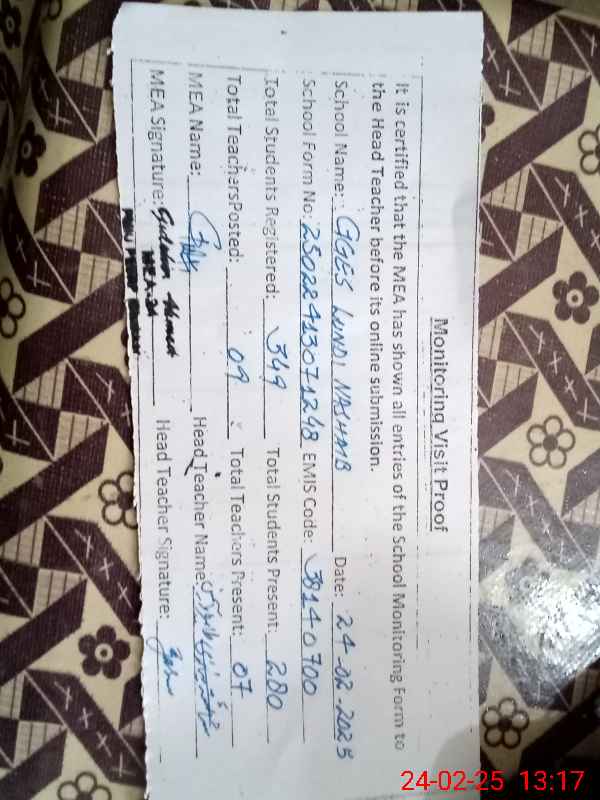 Monitoring Visit Proof
It is certified that the MEA has shown all entries of the School Monitoring Form to
the Head Teacher before its online submission.
School Name: GGES LUNDI NASHAIB Date: 24-02-2025
School Form No: 25022413071248 EMIS Code: 38140700
Total Students Registered: 349 Total Students Present: 280
Total Teachers Posted: 09 Total Teachers Present: 07
MEA Name: Head Teacher Name:
MEA Signature: Ahmed Head Teacher Signature:
MEA
24-02-25 13:17